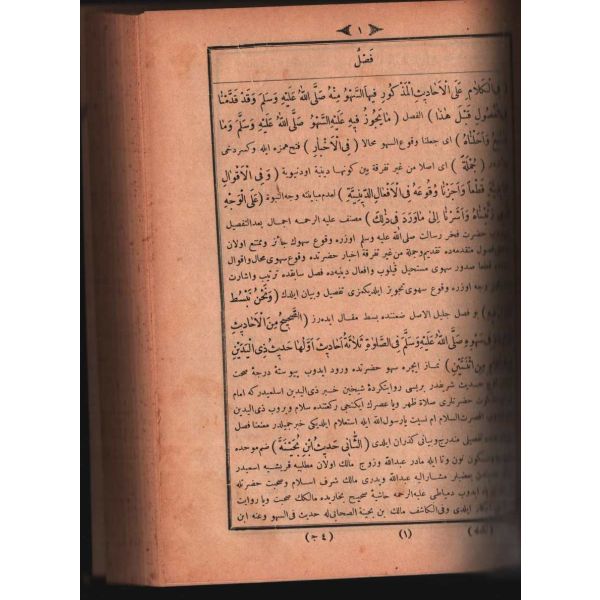 ١
فَصْلٌ
فِى الْكَلَامِ عَلَى الْاَحَادِيثِ الْمَذْكُورِ فِيهَا السَّهْوُ مِنْهُ صَلَّى اللهُ عَلَيْهِ وَسَلَّمَ وَقَدْ قَدَّمْنَا
الْفُصُولِ قَبْلَ هٰذَا ) الفصل ( مَا يَجُوزُ فِيهِ عَلَيْهِ السَّهْوُ صَلَّى اللهُ عَلَيْهِ وَسَلَّمَ وَمَا
وَاَحَلْنَاهُ ) اى جعلنا وقوع السهو محالا ( فِى الْاَخْبَارِ ) فتح همزه ايله وكسر دخى
( جُمْلَةً ) اى اصلا من غير تفرقة بين كونها دينية او دنيوية ( وَفِى الْاَقْوَالِ
قَطْعًا وَاَجَزْنَا وُقُوعَهُ فِى الْاَفْعَالِ الدِّينِيَّةِ ) لعدم مباينته وجه النبوة ( عَلَى الْوَجْهِ
رَتَّبْنَاهُ وَاَشَرْنَا اِلٰى مَا وَرَدَ فِى ذٰلِكَ ) مصنف عليه الرحمه اجمال بعد التفصيل
حضرت فخر رسالت صلى الله عليه وسلم اوزره وقوع سهوك جائز وممتنع اولان
فصول متقدمه ده تقديم وجملة من غير تفرقة اخبار حضرتده وقوع سهوى محال واقوال
قطعا صدور سهوى مستحيل قيلوب وافعال دينيه ده فصل سابقده ترتيب واشارت
وجه اوزره وقوع سهوى تجويز ايلديكمزى تفصيل وبيان ايلدك ( وَنَحْنُ نَبْسُطُ
) بو فصل جليل الاصل ضمننده بسط مقال ايدهرز ( الصَّحِيحُ مِنَ الْاَحَادِيثِ
فِى سَهْوِهِ صَلَّى اللهُ عَلَيْهِ وَسَلَّمَ فِى الصَّلٰوةِ ثَلَاثَةُ اَحَادِيثَ اَوَّلُهَا حَدِيثُ ذِى الْيَدَيْنِ
مِنِ اثْنَتَيْنِ ) نماز ايچره سهو حضرتده ورود ايدوب پيوستهٔ درجهٔ صحت
حديث شريفدر بريسى روايتكردهٔ شيخين خبر ذى اليدين اسلميدركه امام
حضرتلرى صلاة ظهر ويا عصرك ايكنجى ركعتنده سلام ويروب ذى اليدين
اقصرت السلام ام نسيت يا رسول الله ايله استعلام ايلديكى خبر جميلدر معنا فصل
تفصيلى مندرج وبيانى كذران ايلدى ( الثَّانِى حَدِيثُ ابْنِ بُحَيْنَةَ ) ضم موحده
وسكون نون وتا ايله مادر عبدالله وزوج مالك اولان مطلبيه قريشيه اسميدر
مشار اليه عبدالله وپدرى مالك شرف اسلام وصحبت حضرتله
ايدوب دمياطى عليه الرحمه حاشية صحيح بخاريده مالكك صحبت ويا روايت
ايلدى وفى الكاشف مالك بن بحينة الصحابى له حديث فى السهو وعنه ابن
(١)
(٤ ج)